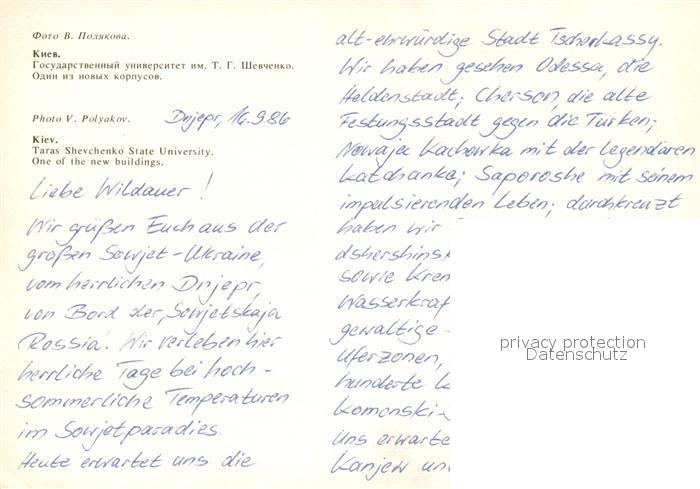 Фото В. Полякова.
Киев.
Государственный университет им. Т. Г. Шевченко.
Один из новых корпусов.
Photo V. Polyakov.
Kiev.
Taras Shevchenko State University.
One of the new buildings.
Dnjepr, 16.9.86
Liebe Wildauer!
Wir grüßen Euch aus der
großen Sowjet-Ukraine,
vom herrlichen Dnjepr,
von Bord der "Sowjetskaja
Rossia". Wir verleben hier
herrliche Tage bei hoch-
sommerliche Temperaturen
im Sowjetparadies.
Heute erwartet uns die
alt-ehrwürdige Stadt Tscherkassy.
Wir haben gesehen Odessa, die
Heldenstadt; Cherson, die alte
Festungsstadt gegen die Türken;
Nowaja Kachowka mit der legendären
Katchanka; Saporoshe mit seinem
impulsierenden Leben; durchkreuzt
haben wir
dshershins
sowie Krem
Wasserkraf
gewaltige
Uferzonen,
hunderte K
Komonski-
Uns erwarte
Kanjew un
privacy protection
Datenschutz